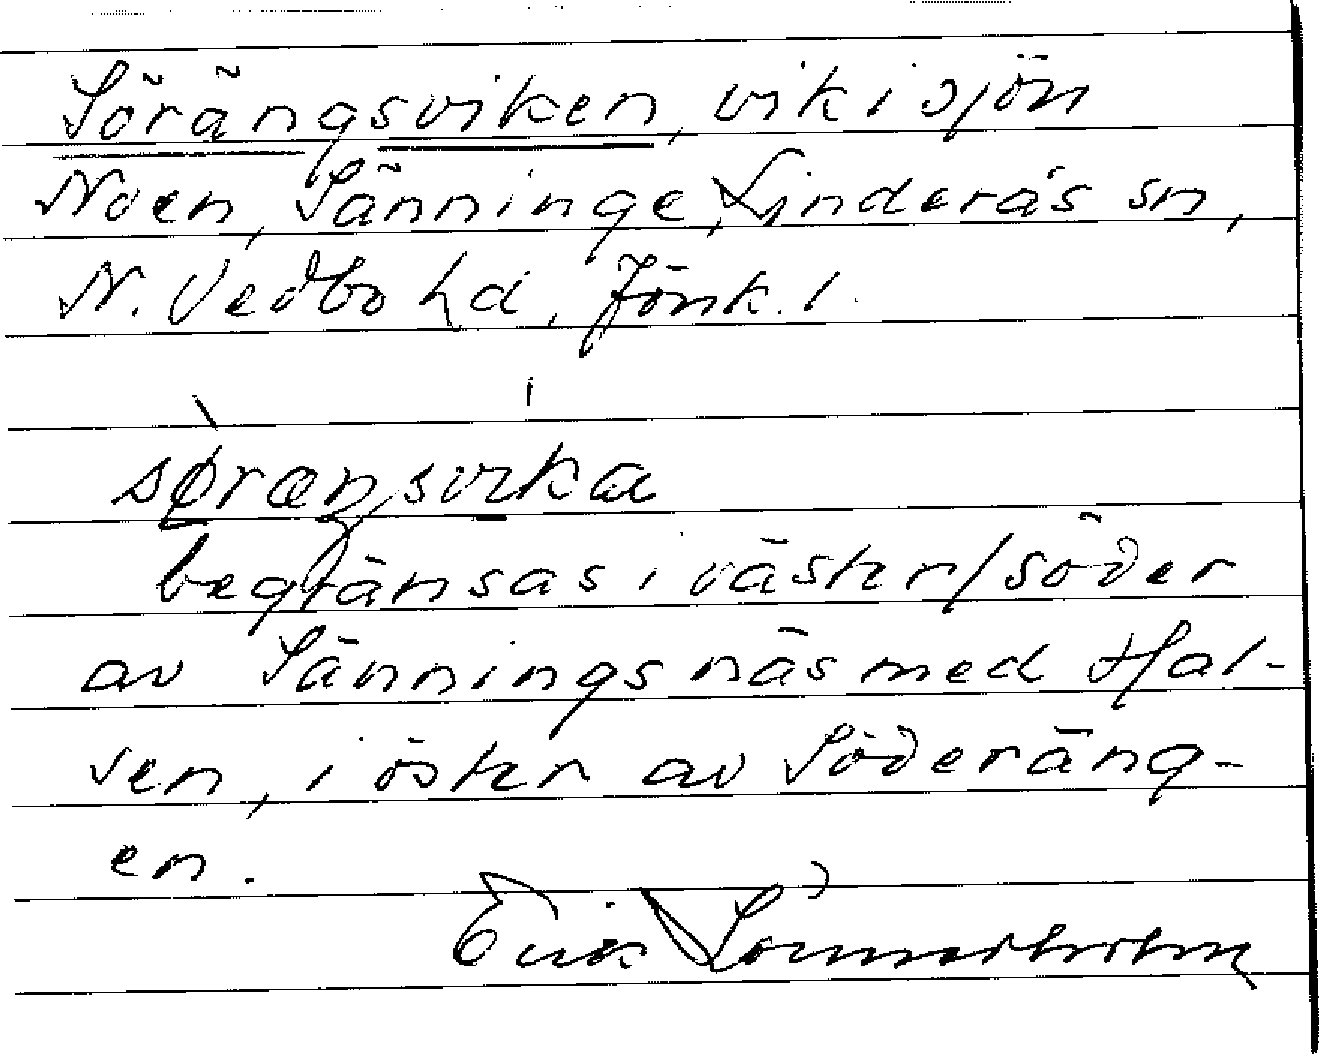 Sörängsviken, vik i sjön
Noen, Sänninge, Linderås sn,
N. Vedbo hd, Jönk. l.
sørænsvika
begränsas i väster/söder
av Sänningsnäs med Hal-
sen, i öster av Söderäng-
en.
Erik